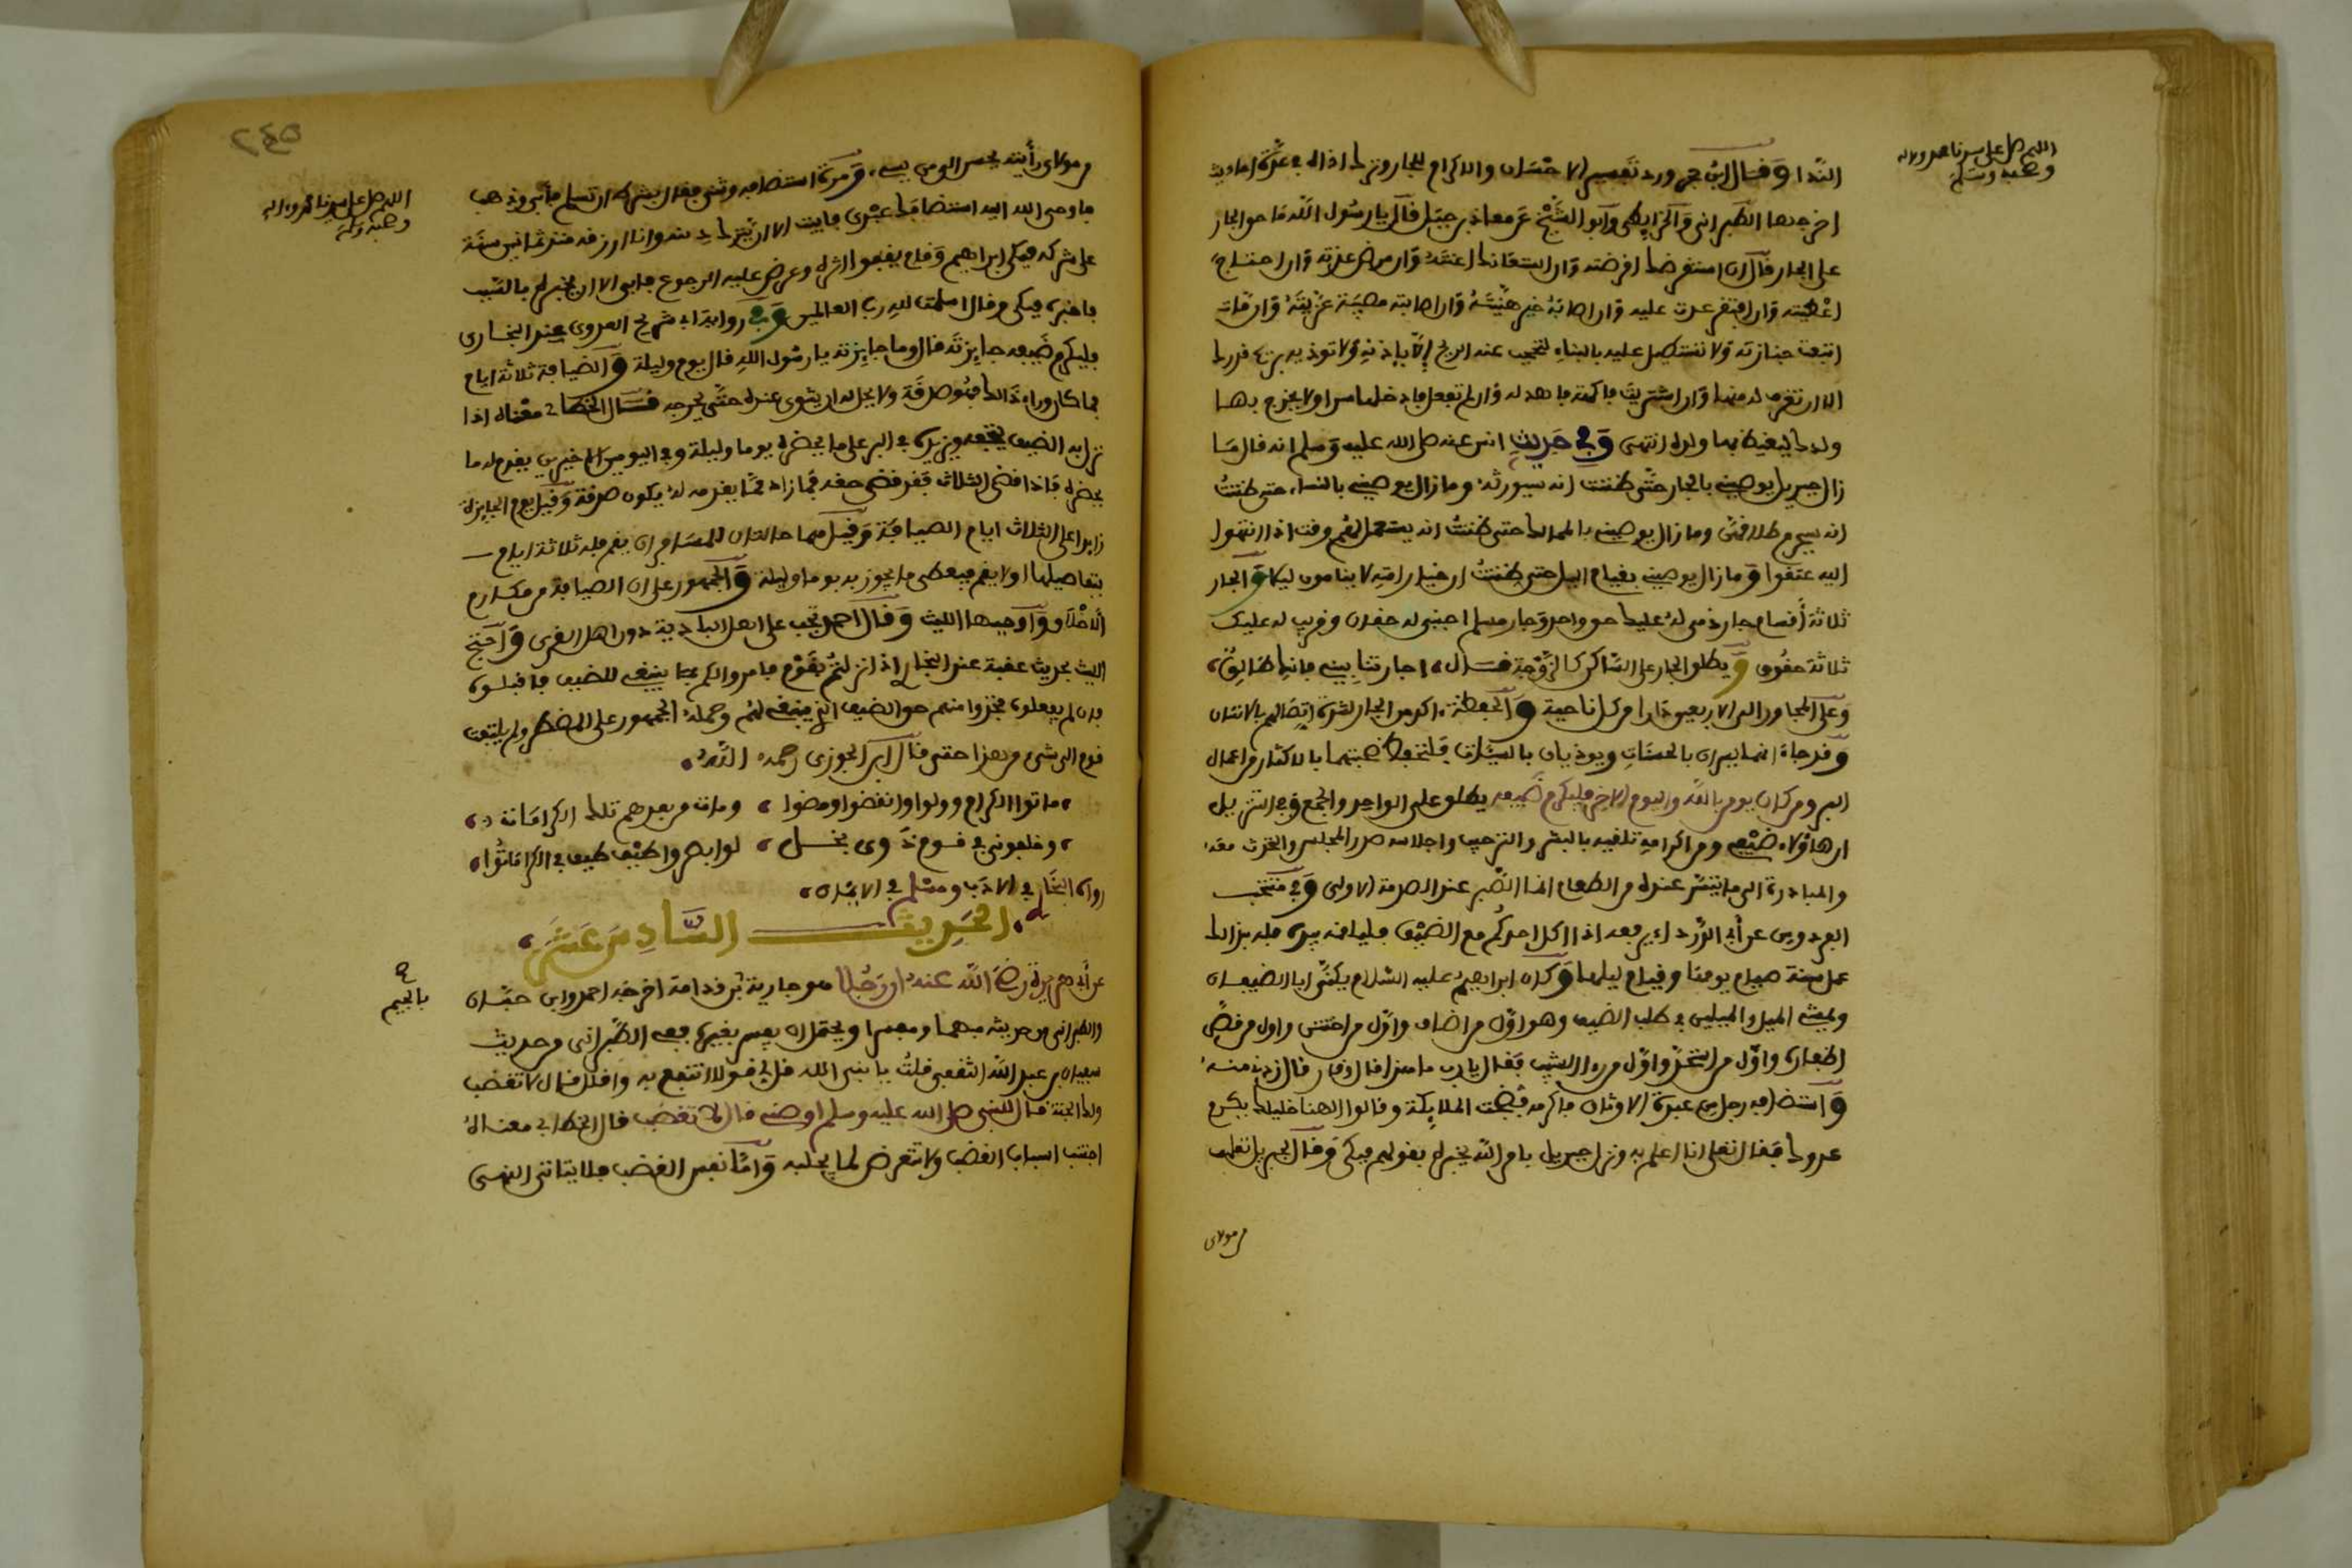 اللهم صل على سيدنا محمد واله
وصحبه وسلم
النداء وقال ابن حجر ورد تفسير الاحسان والاكرام للجار وترك اذاه في عدة احاديث
اخرجها الطبراني والخرايطي وابو الشيخ عن معاذ بن جبل قال يا رسول الله ما حق الجار
على الجار قال ان استقرضك اقرضته وان استعانك اعنته وان مرض عدته وان احتاج
اعطيته وان افتقر عدت عليه وان اصابه خير هنيته وان اصابته مصيبة عزيته وان مات
اتبعت جنازته ولا تستطيل عليه بالبناء فتحجب عنه الريح الا باذنه ولا توذيه بريح قدرك
الا ان تغرف له منها وان اشتريت فاكهة فاهد له وان لم تفعل فادخلها سرا ولا يخرج بها
ولدك ليغيظ بها ولده انتهى وفي حديث انس عنه صلى الله عليه وسلم انه قال ما
زال جبريل يوصيني بالجار حتى ظننت انه سيورثه وما زال يوصيني بالنساء حتى ظننت
انه سيحرم طلاقهن وما زال يوصيني بالمماليك حتى ظننت انه يستجعل لهم وقت اذا انتهوا
اليه عتقوا وما زال يوصيني بقيام الليل حتى ظننت ان خيار امتي لا ينامون ليلا والجار
ثلاثة اقسام جار ذمي له عليك حق واحد وجار مسلم اجنبي له حقان وقريب له عليك
ثلاثة حقوق ويطلق الجار على الساكن كالزوجة قال اجارتنا بيني فانك طالق
وعلى المجاور الى الاربعين دارا من كل ناحية والحفظة اكرمن الجار لشدة اتصالهم بالانسان
وقد جاء انهما يسران بالحسنات ويوذيان بالسيئات فلنحفظ صحبتهما بالاكثار من اعمال
البر ومن كان يومن بالله واليوم الاخر فليكرم ضيفه يطلق على الواحد والجمع وفي التنزيل
ان هاؤلاء ضيفي ومن اكرامه تلقيه بالبشر والترحيب واجلاسه صدر المجلس والتحدث معه
والمبادرة الى ما تيسر عنده من الطعام انما الصبر عند الصدمة الاولى وفي منتخب
الفردوس عن ابي الدرداء يرفعه اذا اكل احدكم مع الضيف فليلقمه بيده فله بذلك
عمل سنة صيام يومها وقيام ليلها وكان ابراهيم عليه السلام يكنى ابا الضيفان
ويمشي الميل والميلين في طلب الضيف وهو اول من اضاف واول من اختتن واول من قص
اظفاره واول من استحد واول من راى الشيب فقال يا رب ما هذا قال وقار قال زدني منه
واستضافه رجل من عبدة الاوثان فاكرمه فضجت الملايكة وقالوا الهنا خليلك يكرم
عدوك فقال تعلى انا اعلم به ونزل جبريل بامر الله يخبره بقولهم فبكى وقال لجبريل تعلمت
من مولاي
٢٤٥
اللهم صل على سيدنا محمد واله
وصحبه وسلم
من مولاي رايته يحسن الى من يسيء ومرة استضافه وثني فقال بشرط ان تسلم فابى وذهب
فاوحى الله اليه استضافك عبدي فابيت الا ان يترك دينه وانا ارزقه منذ ثمانين سنة
على شركه فبكى ابراهيم وقام يقفوا اثره وعرض عليه الرجوع فابى الا ان يخبره بالسبب
فاخبره فبكى وقال اسلمت لله رب العالمين وفي رواية ابي شريح العدوي عند البخاري
فليكرم ضيفه جايزته قال وما جايزته يا رسول الله قال يوم وليلة والضيافة ثلاثة ايام
فما كان وراء ذالك فهو صدقة ولا يحل له ان يثوي عنده حتى يحرجه قال الخطابي معناه اذا
نزل به الضيف يتحفه ويزيده في البر على ما يحضره يوما وليلة وفي اليومين الاخيرين يقدم له ما
يحضره فاذا قضى الثلاث فقد قضى حقه فما زاد مما يقدمه له يكون صدقة وقيل يوم الجايزة
زايد على الثلاث ايام الضيافة وقيل هما حالتان للمسافر ان يقم فله ثلاثة ايام
بتفاصيلها اولا يقم فيعطى ما يجوز به يوما وليلة والجمهور على ان الضيافة من مكارم
الاخلاق واوجبها الليث وقال احمد تجب على اهل البادية دون اهل القرى واحتج
الليث بحديث عقبة عند البخاري اذا نزلتم بقوم فامروا لكم بما ينبغي للضيف فاقبلوه
فان لم يفعلوا فخذوا منهم حق الضيف الذي ينبغي لهم وحمله الجمهور على المضطر ولم يلتفت
قوم الى شيء من هذا حتى قال ابن الجوزي رحمه الله
ماتوا الكرام وولوا وانقضوا ومضوا ومات من بعدهم تلك الكرامات
وخلفوني في قوم ذوي بخل لو ابصروا طيف ضيف في الكرى ماتوا
رواه البخاري في الادب ومسلم في الايمان
الحديث السادس عشر
عن ابي هريرة رضي الله عنه ان رجلا هو جارية بن قدامة اخرجه احمد وابن حبان
بالجيم
والطبراني من حديثه مبهما ومفسرا ويحتمل ان يفسر بغيره ففي الطبراني من حديث
سفيان بن عبد الله الثقفي قلت يا نبي الله قل لي قولا انتفع به واقلل قال لا تغضب
ولك الجنة قال للنبي صلى الله عليه وسلم اوصني قال لا تغضب قال الخطابي معناه
اجتنب اسباب الغضب ولا تتعرض لما يجلبه واما نفس الغضب فلا يتاتى النهي